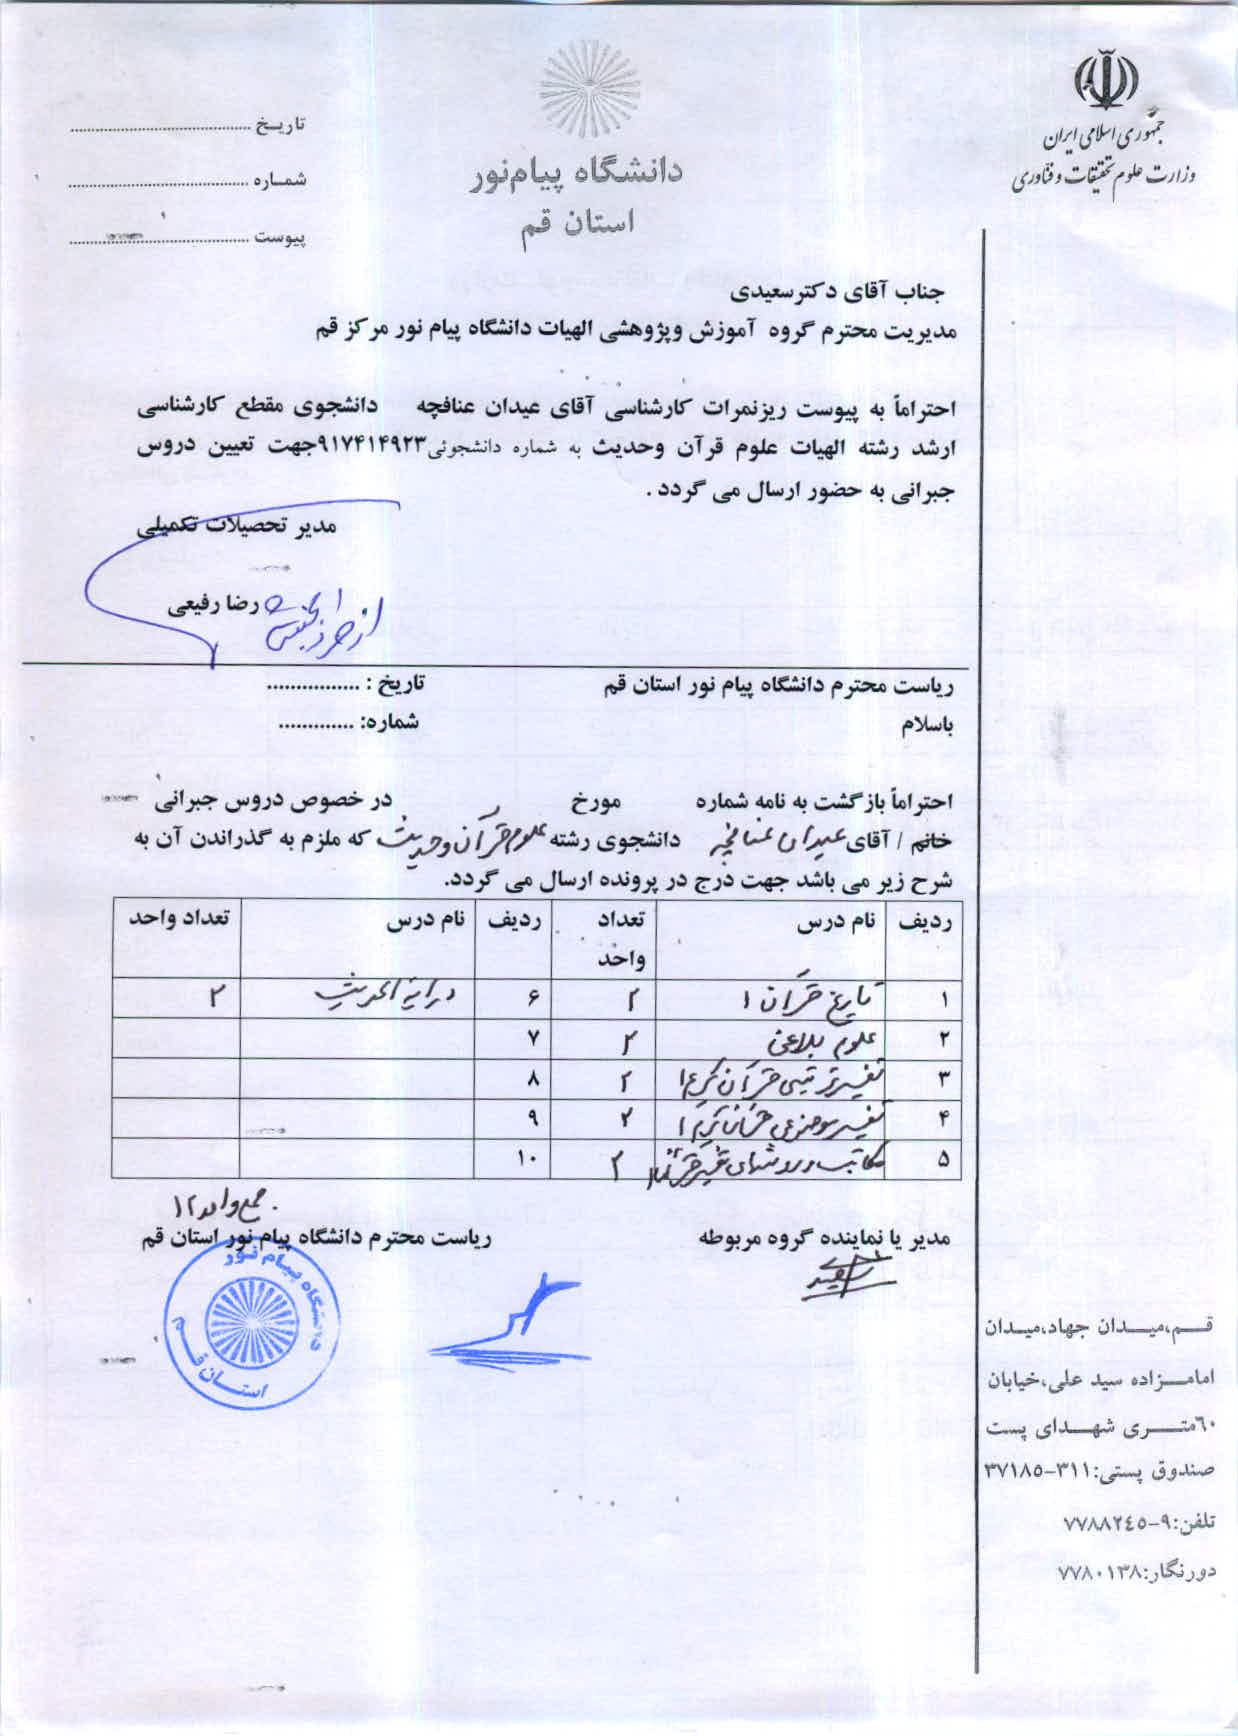 جمهوری اسلامی ایران
وزارت علوم تحقیقات و فناوری
دانشگاه پیام‌نور
استان قم
تاریـخ ........................................
شمـاره ........................................
پیوست ........................................
جناب آقای دکترسعیدی
مدیریت محترم گروه آموزش وپژوهشی الهیات دانشگاه پیام نور مرکز قم
احتراماً به پیوست ریزنمرات کارشناسی آقای عیدان عنافچه دانشجوی مقطع کارشناسی
ارشد رشته الهیات علوم قرآن وحدیث به شماره دانشجوئی۹۱۷۴۱۴۹۲۳جهت تعیین دروس
جبرانی به حضور ارسال می گردد .
مدیر تحصیلات تکمیلی
رضا رفیعی
ریاست محترم دانشگاه پیام نور استان قم
تاریخ : ................
باسلام
شماره: .............
احتراماً بازگشت به نامه شماره مورخ در خصوص دروس جبرانی
خانم / آقای عیدان عنافچه دانشجوی رشته علوم قرآن و حدیث که ملزم به گذراندن آن به
شرح زیر می باشد جهت درج در پرونده ارسال می گردد.
ردیف نام درس تعداد واحد ردیف نام درس تعداد واحد
۱ تاریخ قرآن ۱ ۲ ۶ درایة الحدیث ۲
۲ علوم بلاغی ۲ ۷
۳ تفسیر ترتیبی قرآن کریم ۱ ۲ ۸
۴ تفسیر موضوعی قرآن کریم ۱ ۲ ۹
۵ مکاتب و روشهای تفسیر قرآن ۲ ۱۰
جمع واحد ۱۲
مدیر یا نماینده گروه مربوطه
ریاست محترم دانشگاه پیام نور استان قم
دانشگاه پیام نور
استان قم
قـم،میـدان جهاد،میـدان
امامـزاده سید علی،خیابان
٦٠متـری شهـدای پست
صندوق پستی:۳۱۱-۳۷۱۸۵
تلفن:۹-۷۷۸۸۲٤٥
دورنگار:۷۷۸۰۱۳۸